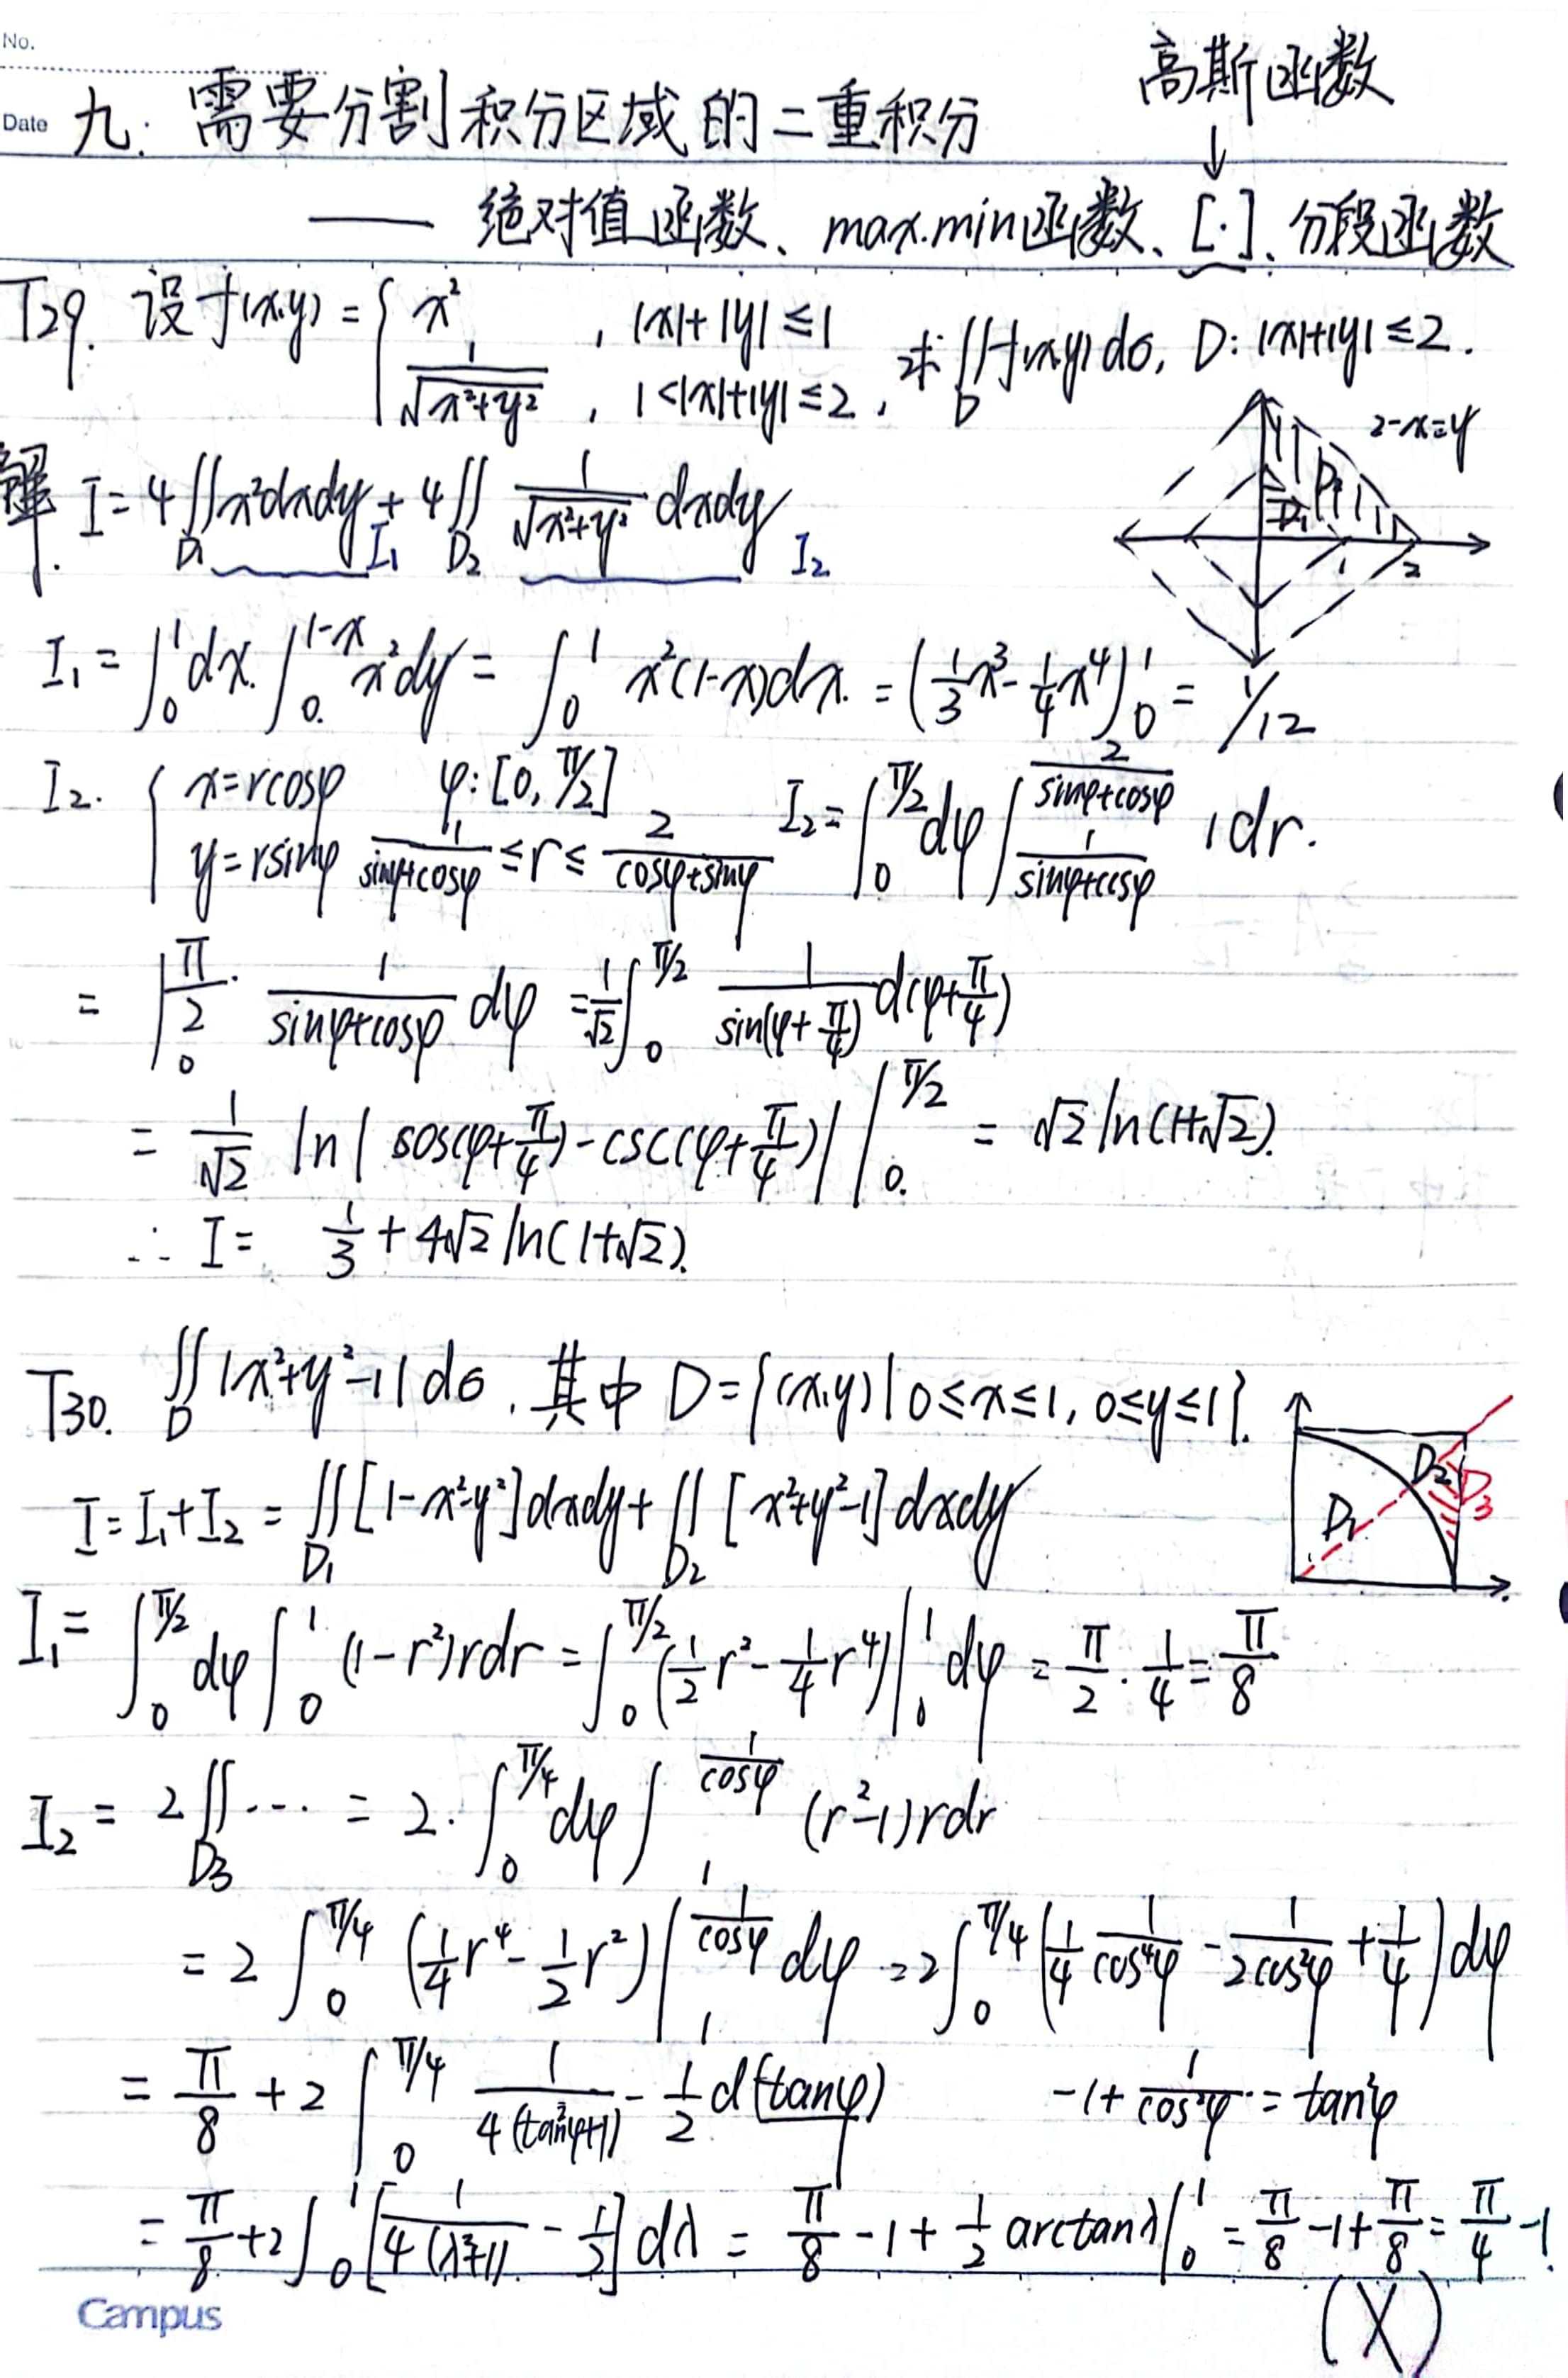 No.
Date
高斯函数
↓
九. 需要分割积分区域的二重积分
—— 绝对值函数、max.min函数、[·]、分段函数
T29. 设f(x,y) = { x² , |x|+|y| ≤ 1 ; 1/√(x²+y²) , 1<|x|+|y| ≤ 2 , 求∬_D f(x,y)dσ, D: |x|+|y| ≤ 2.
2-x=y
D₂
D₁
1 2
解. I = 4∬_{D₁} x²dxdy + 4∬_{D₂} 1/√(x²+y²) dxdy
I₁ I₂
I₁ = ∫₀¹ dx. ∫₀^{1-x} x²dy = ∫₀¹ x²(1-x)dx. = (1/3 x³ - 1/4 x⁴)|₀¹ = 1/12
I₂. { x=rcosφ ; y=rsinφ φ: [0, π/2] 1/(sinφ+cosφ) ≤ r ≤ 2/(cosφ+sinφ) I₂ = ∫₀^{π/2} dφ ∫_{1/(sinφ+cosφ)}^{2/(sinφ+cosφ)} 1 dr.
= ∫₀^{π/2} · 1/(sinφ+cosφ) dφ = 1/√2 ∫₀^{π/2} 1/sin(φ+π/4) d(φ+π/4)
= 1/√2 ln| sos(φ+π/4) - csc(φ+π/4)| |₀^{π/2} = √2 ln(1+√2).
∴ I = 1/3 + 4√2 ln(1+√2).
T30. ∬_D |x²+y²-1| dσ, 其中 D={(x,y)| 0≤x≤1, 0≤y≤1}.
D₂
D₃
D₁
I = I₁+I₂ = ∬_{D₁} [1-x²-y²]dxdy + ∬_{D₂} [x²+y²-1]dxdy
I₁ = ∫₀^{π/2} dφ ∫₀¹ (1-r²)rdr = ∫₀^{π/2} (1/2 r² - 1/4 r⁴)|₀¹ dφ = π/2 · 1/4 = π/8
I₂ = 2∬_{D₃} ··· = 2· ∫₀^{π/4} dφ ∫₁^{1/cosφ} (r²-1)rdr
= 2 ∫₀^{π/4} (1/4 r⁴ - 1/2 r²)|₁^{1/cosφ} dφ = 2∫₀^{π/4} (1/4 1/cos⁴φ - 1/2cos²φ + 1/4) dφ
= π/8 + 2 ∫₀^{π/4} 1/4(tan²φ+1) - 1/2 d(tanφ) -1 + 1/cos²φ = tan²φ
= π/8 + 2∫₀¹ [1/4(λ²+1) - 1/2] dλ = π/8 - 1 + 1/2 arctanλ|₀¹ = π/8 - 1 + π/8 = π/4 - 1.
(X)
Campus